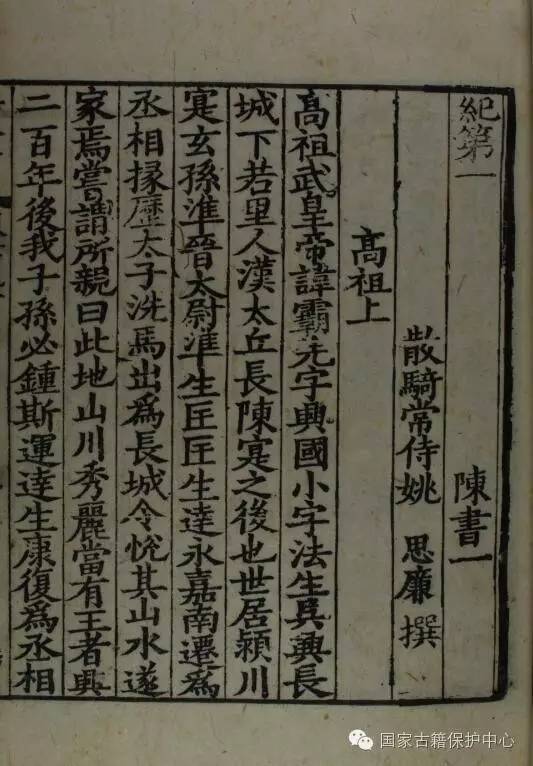 紀第一 陳書一
散騎常侍姚 思廉 撰
高祖上
高祖武皇帝諱霸先字興國小字法生吳興長
城下若里人漢太丘長陳寔之後也世居潁川
寔玄孫準晉太尉準生匡匡生達永嘉南遷爲
丞相掾歷太子洗馬出爲長城令悅其山水遂
家焉嘗謂所親曰此地山川秀麗當有王者興
二百年後我子孫必鍾斯運達生康復爲丞相
国家古籍保护中心